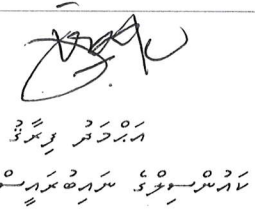 އަޙްމަދު ފިރާޤު
ކައުންސިލްގެ ނައިބުރައީސް